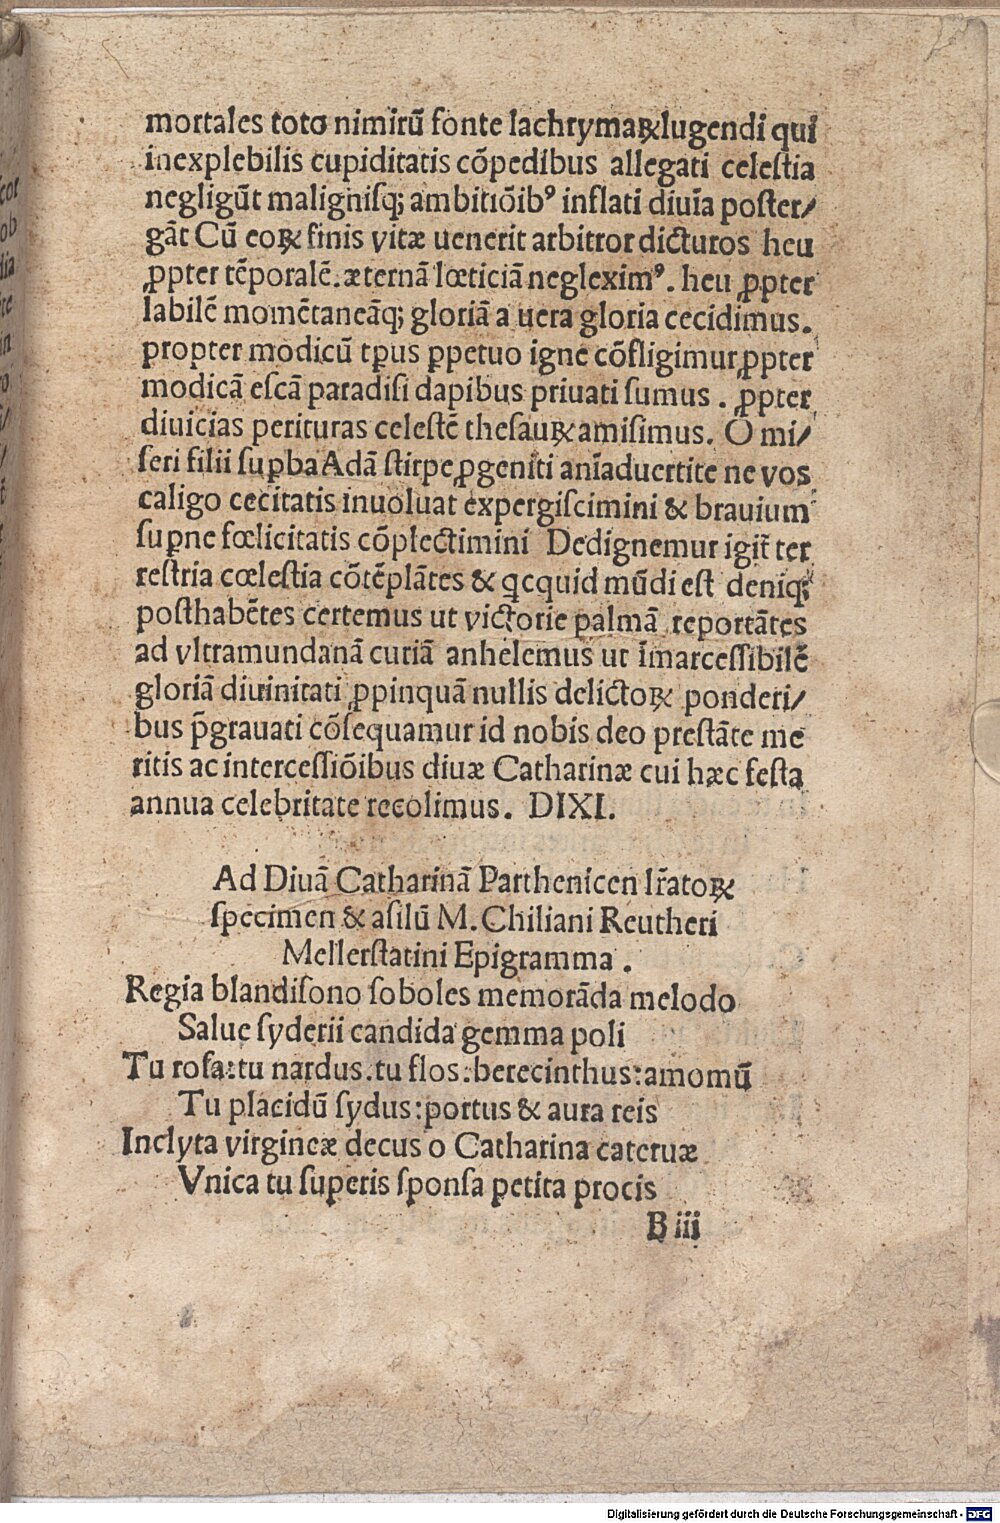 mortales toto nimirū fonte lachrymaꝝ lugendi qui
inexplebilis cupiditatis cōpedibus allegati celeſtia
negligūt maligniſq; ambitiōibꝰ inflati diuīa poſter/
gāt Cū eoꝝ finis vitæ uenerit arbitror dicturos heu
ꝓpter tēporalē. æternā lœticiā neglexim⁹. heu ꝓpter
labilē momētaneāq; gloriā a uera gloria cecidimus.
propter modicū tp̄us ꝑpetuo igne cōfligimur ꝓpter
modicā eſcā paradiſi dapibus priuati ſumus. ꝓpter
diuicias perituras celeſtē theſauꝝ amiſimus. O mi/
ſeri filii ſuꝑba Adā ſtirpe ꝓgeniti anīaduertite ne vos
caligo cecitatis inuoluat expergiſcimini & brauium
ſuꝑne fœlicitatis cōplectimini Dedignemur igit̄ ter
reſtria cœleſtia cōtēplātes & qcquid mūdi eſt deniq;
poſthabētes certemus ut victorie palmā reportātes
ad vltramundanā curiā anhelemus ut īmarceſſibilē
gloriā diuinitati ꝓpinquā nullis delictoꝝ ponderi/
bus p̄grauati cōſequamur id nobis deo preſtāte me
ritis ac interceſſiōibus diuæ Catharinæ cui hæc feſta
annua celebritate recolimus. DIXI.
Ad Diuā Catharinā Parthenicen lr̄atoꝝ
ſpecimen & aſilū M. Chiliani Reutheri
Mellerſtatini Epigramma.
Regia blandiſono ſoboles memorāda melodo
Salue ſyderii candida gemma poli
Tu roſa: tu nardus. tu flos: berecinthus: amomū
Tu placidū ſydus: portus & aura reis
Inclyta virgineæ decus o Catharina cateruæ
Vnica tu ſuperis ſponſa petita procis
B iii
Digitalisierung gefördert durch die Deutsche Forschungsgemeinschaft - DFG